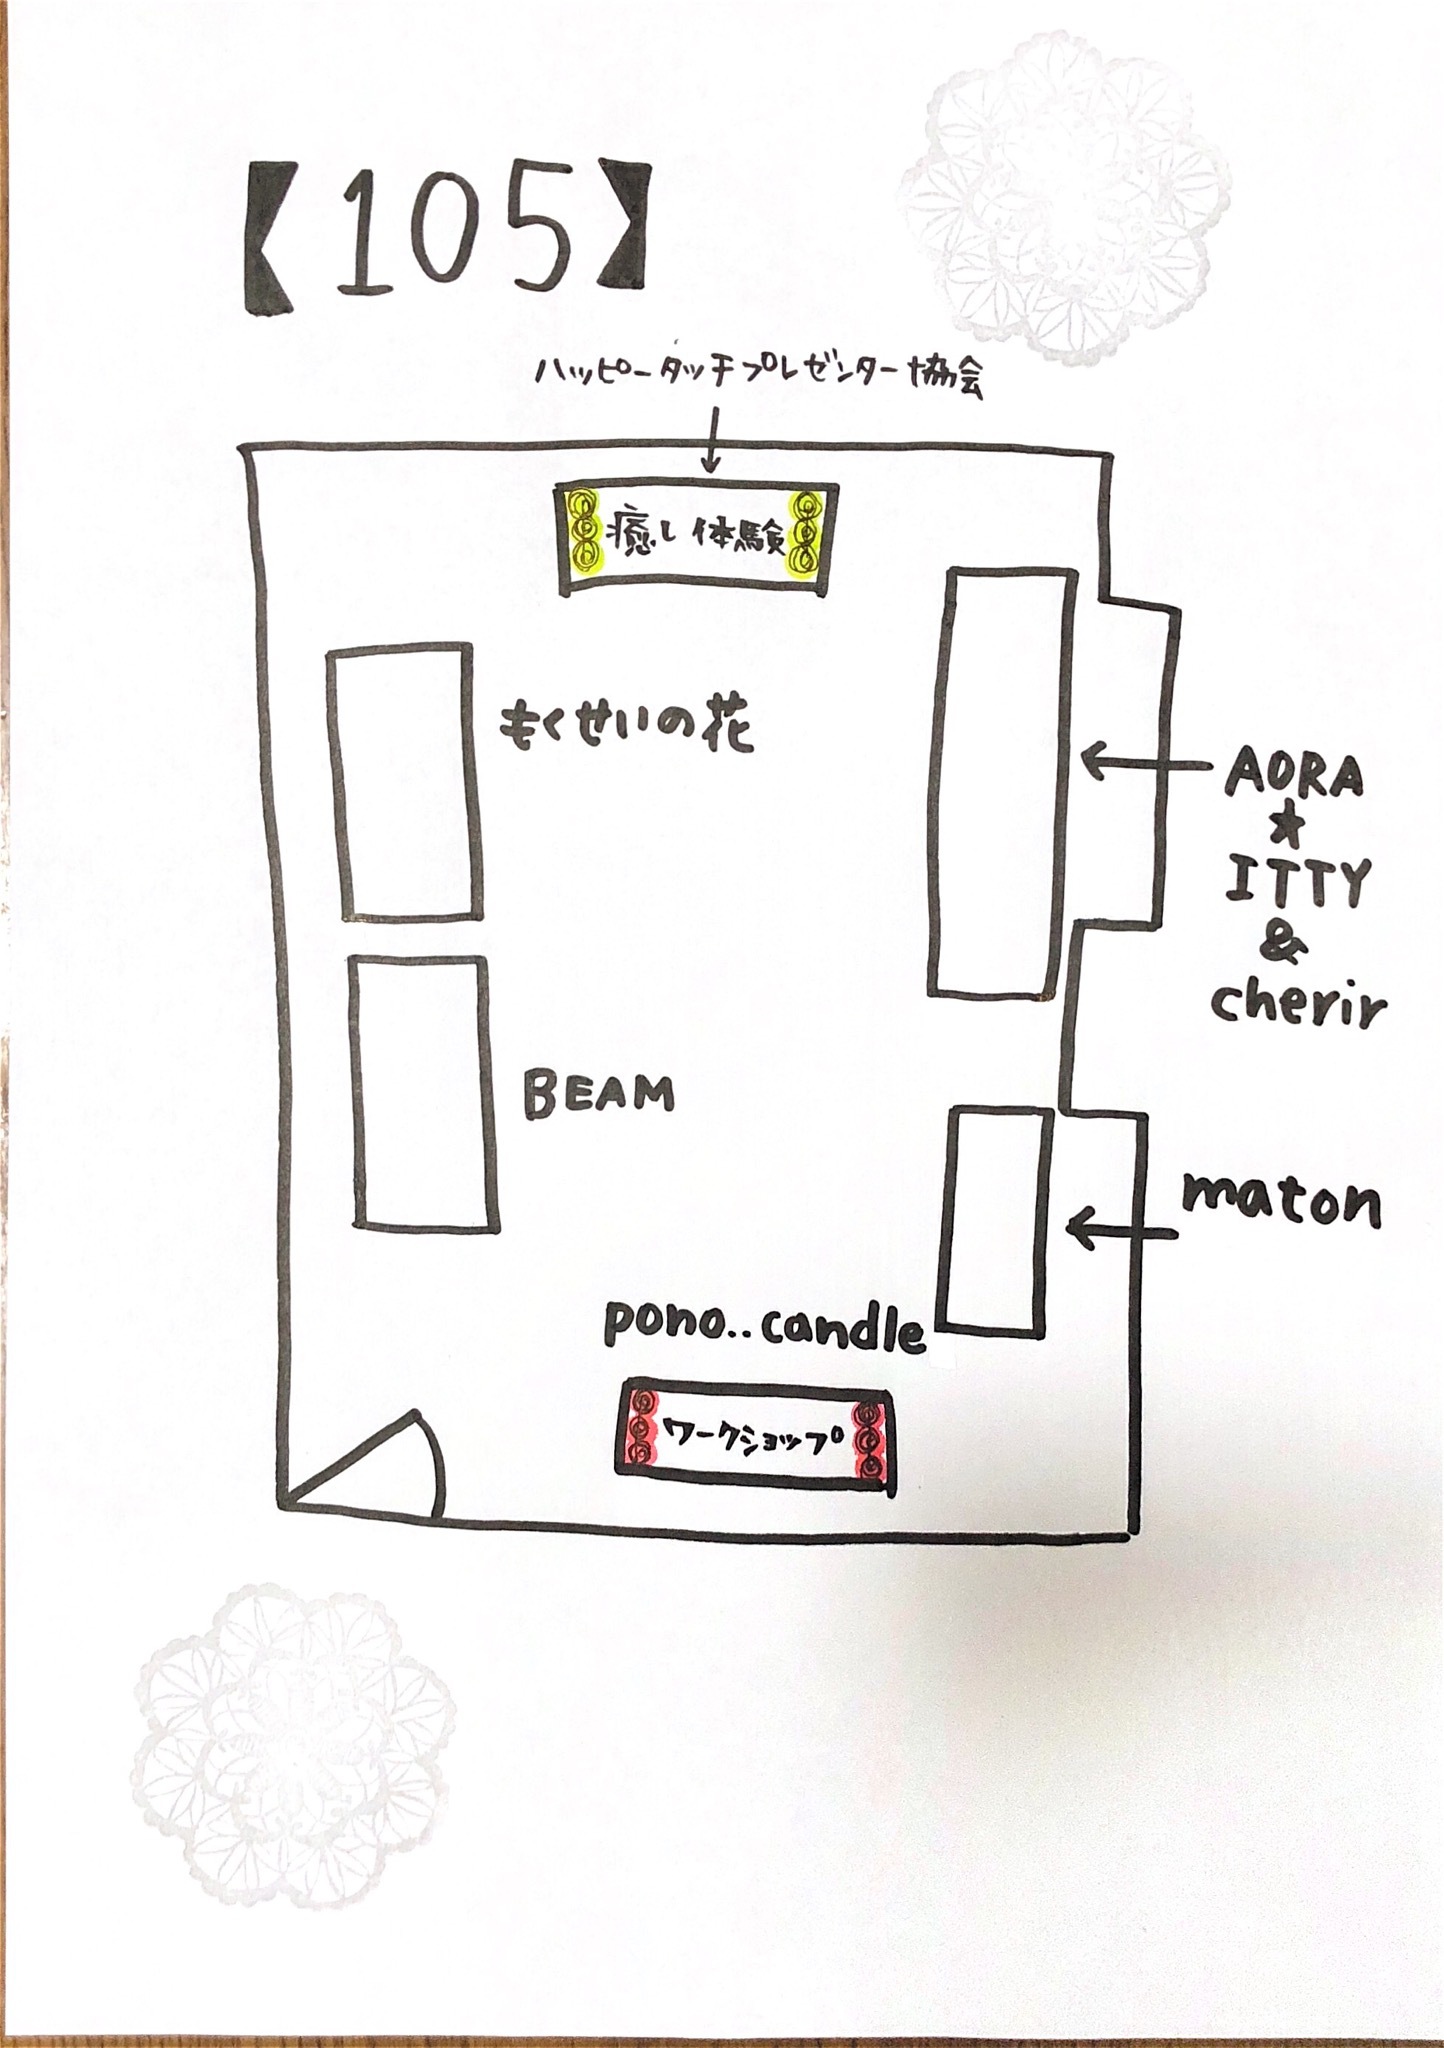 【105】
ハッピータッチプレゼンター協会
癒し体験
もくせいの花
AORA
★
ITTY
&
cherir
BEAM
maton
pono..candle
ワークショップ